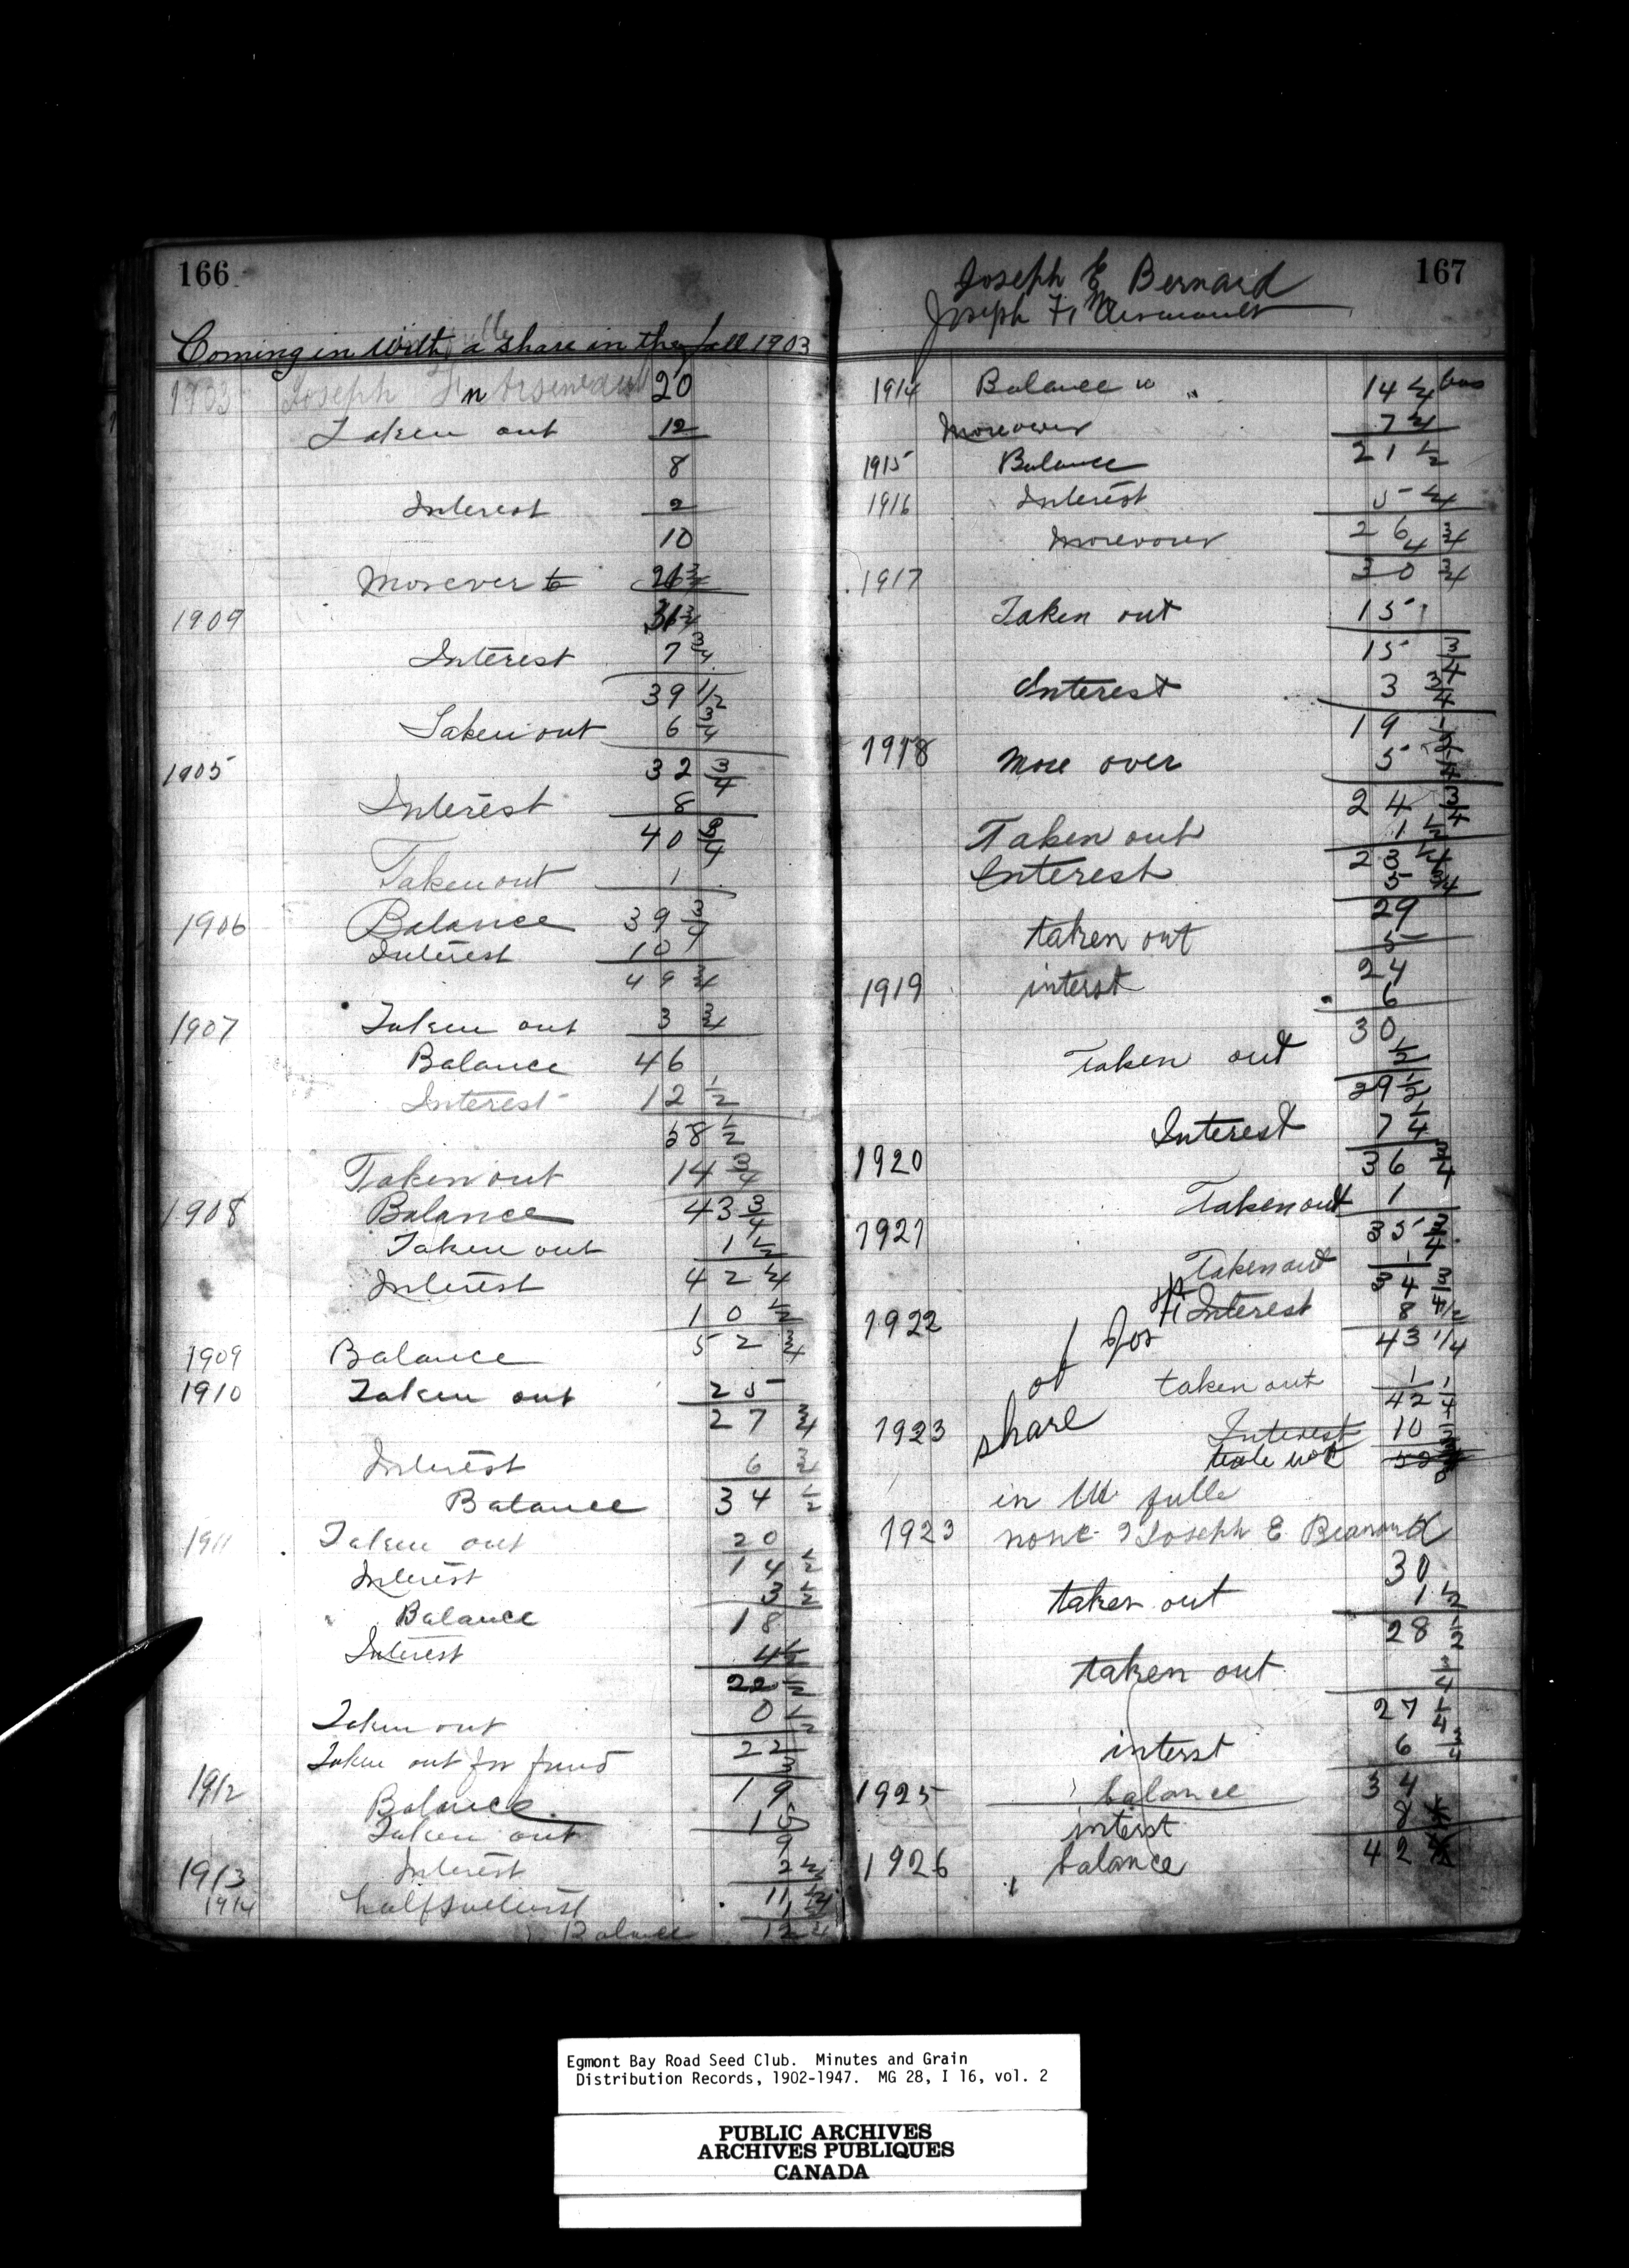 166
Coming in with a share in the fall 1903
1903 Joseph Arseneault 20
Taken out 12
8
Interest 2
10
Moreover 21 3/4
1909 31 3/4
Interest 7 3/4
39 1/2
Taken out 6 3/4
1905 32 3/4
Interest 8
40 3/4
Taken out 1
1906 Balance 39 3/4
Interest 10
49 3/4
1907 Taken out 3 3/4
Balance 46
Interest 12 1/2
58 1/2
Taken out 14 3/4
1908 Balance 43 3/4
Taken out 1 1/2
Interest 42 1/4
10 1/2
1909 Balance 52 3/4
1910 Taken out 25
27 3/4
Interest 6 3/4
Balance 34 1/2
1911 Taken out 20
14 1/2
Interest 3 1/2
Balance 18
Interest 4 1/2
22 1/2
Taken out 0 1/2
22
Taken out for fund 3
1912 Balance 19
Taken out 10
9
1913 Interest 2 1/4
11 1/4
1914 half interest 1
Balance 12 1/4
167
Joseph E Bernard
Joseph Fr Arsenault
1914 Balance 14 1/4 bus
Moreover 7 1/4
1915 Balance 21 1/2
1916 Interest 5 1/4
26 3/4
Moreover 4
1917 30 3/4
Taken out 15
15 3/4
Interest 3 3/4
19 1/2
1918 More over 5 1/4
24 3/4
Taken out 1 1/2
Interest 23 1/4
5 3/4
29
taken out 5
24
1919 interst 6
30
Taken out 1/2
29 1/2
Interest 7 1/4
1920 36 3/4
Taken out 1
1921 35 3/4
Taken out 1
34 3/4
1922 Interest 8 1/2
43 1/4
taken out 1
42 1/4
1923 Interest 10
share of Jos
in full
1923 Joseph E
30
taken out 1 1/2
28 1/2
taken out 3/4
27 1/4
interst 6 3/4
1925 balance 34
interst 8
1926 balance 42
Egmont Bay Road Seed Club. Minutes and Grain
Distribution Records, 1902-1947. MG 28, I 16, vol. 2
PUBLIC ARCHIVES
ARCHIVES PUBLIQUES
CANADA